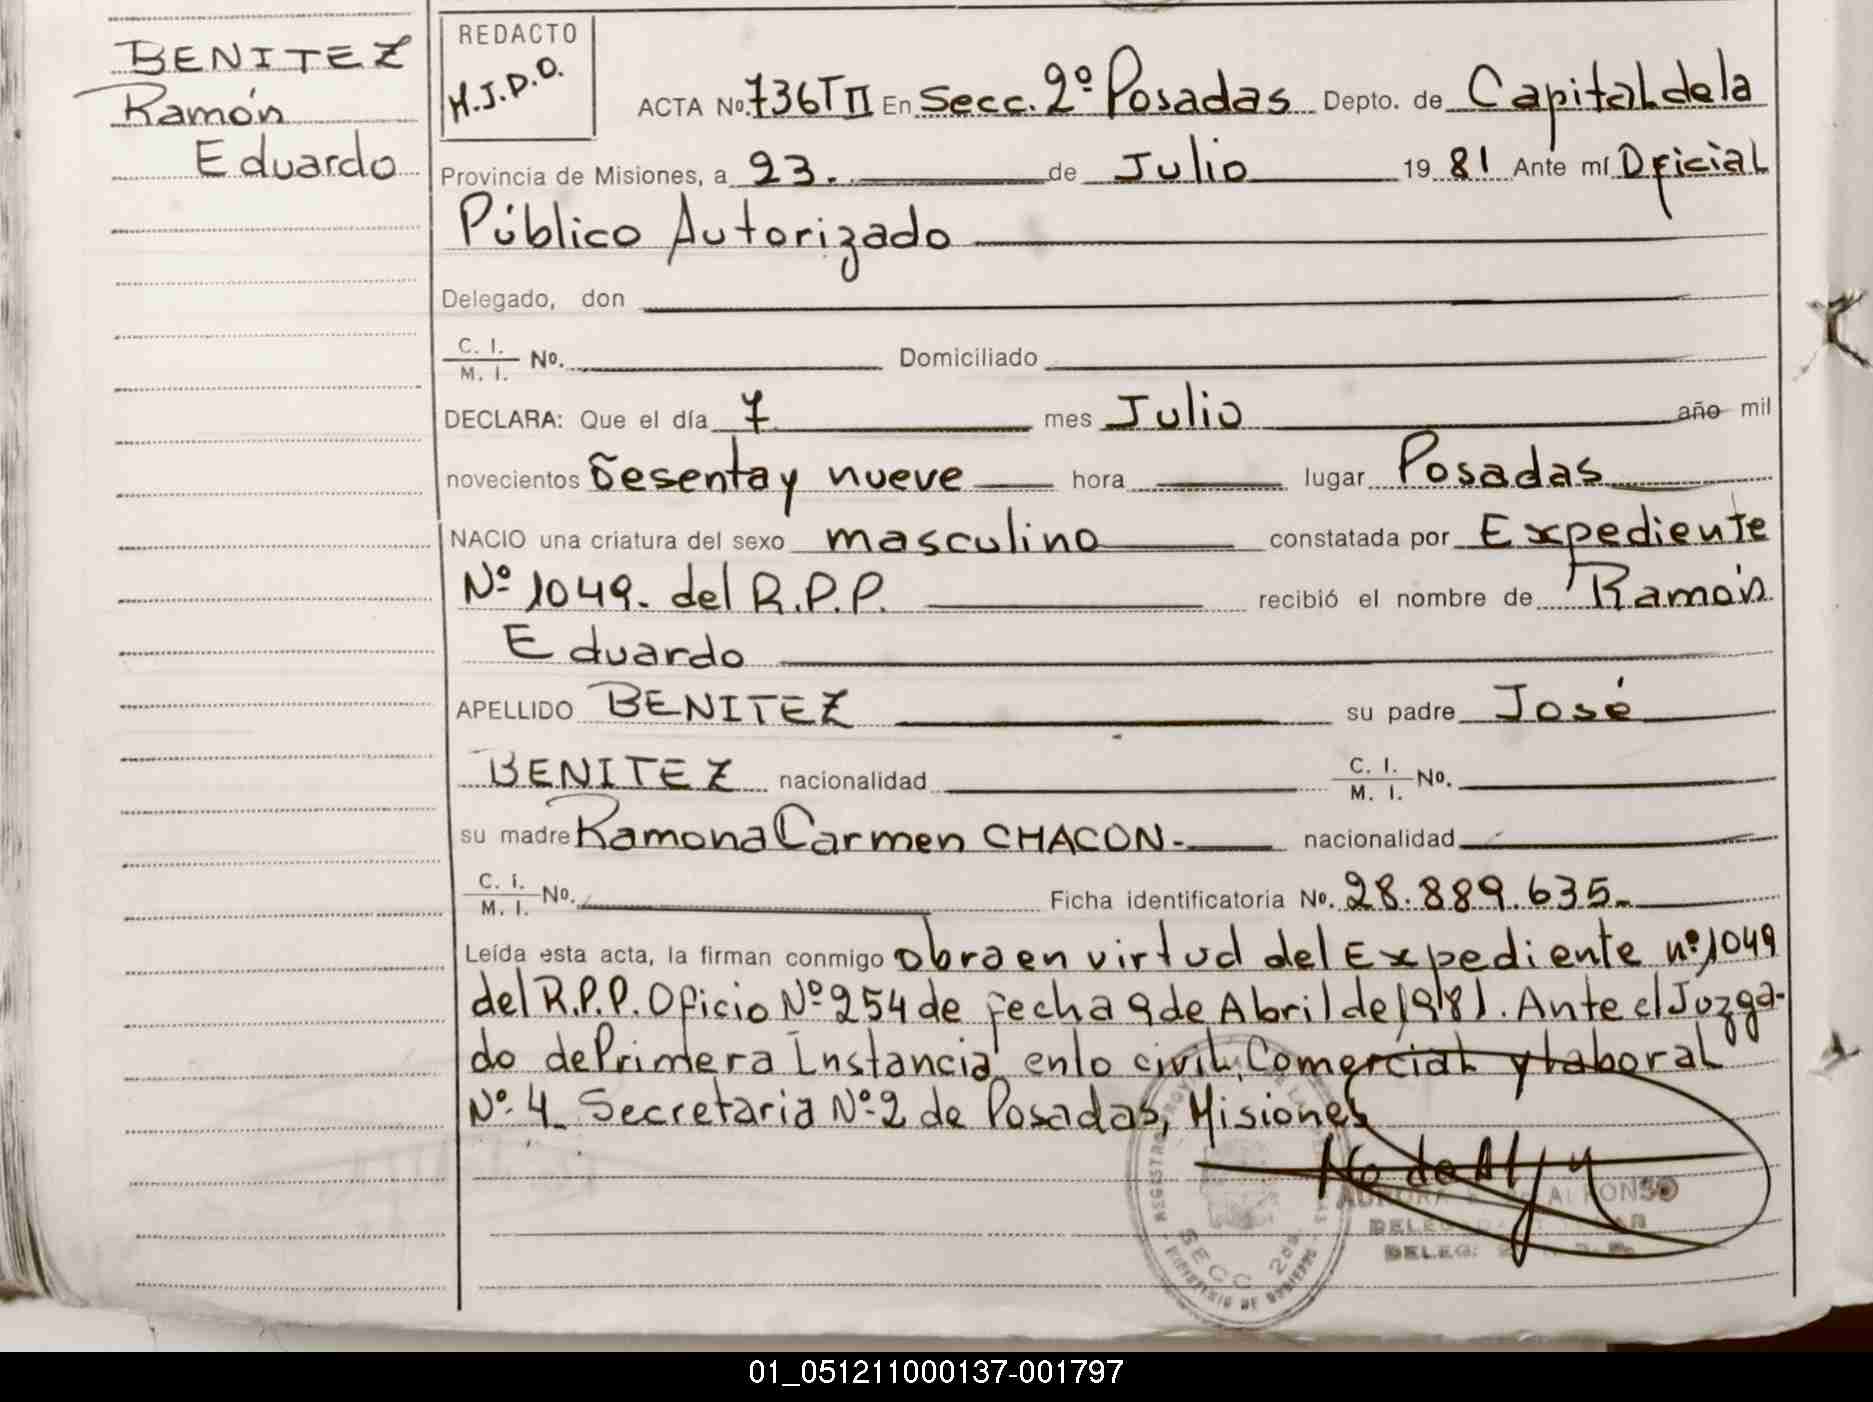 BENITEZ
Ramón
Eduardo
REDACTO
M.J.D.O.
ACTA No. 736 T II En Secc. 2º Posadas Depto. de Capital de la
Provincia de Misiones, a 23. de Julio 19 81 Ante mí Oficial
Público Autorizado
Delegado, don
C. I. / M. I. No. Domiciliado
DECLARA: Que el día 7 mes Julio año mil
novecientos Sesenta y nueve hora lugar Posadas
NACIO una criatura del sexo masculino constatada por Expediente
Nº 1049. del R.P.P. recibió el nombre de Ramón
Eduardo
APELLIDO BENITEZ su padre José
BENITEZ nacionalidad C. I. / M. I. No.
su madre Ramona Carmen CHACON.- nacionalidad
C. I. / M. I. No. Ficha identificatoria No. 28.889.635.-
Leída esta acta, la firman conmigo obra en virtud del Expediente nº 1049
del R.P.P. Oficio Nº 254 de fecha 9 de Abril de 1981. Ante el Juzga-
do de Primera Instancia en lo civil, Comercial y laboral
Nº 4 Secretaria Nº 2 de Posadas, Misiones
SECC 2da
01_051211000137-001797